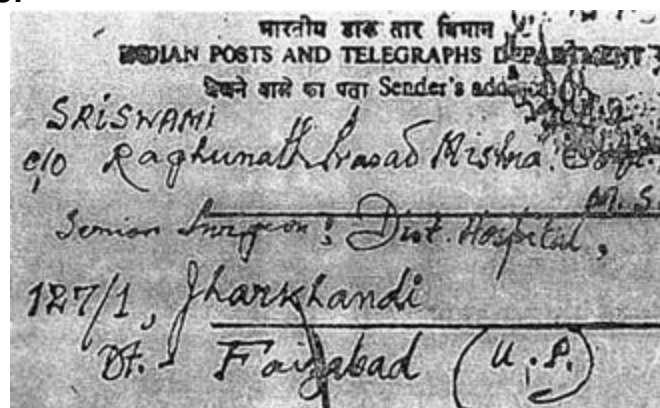 भारतीय डाक तार विभाग
INDIAN POSTS AND TELEGRAPHS DEPARTMENT
वाले का पता Sender's address
SRISWAMI
c/o Raghunath Prasad Mishra.
M.S.
Senior Surgeon; Dist. Hospital,
127/1, Jharkhandi
Dt. - Faizabad (U.P.)